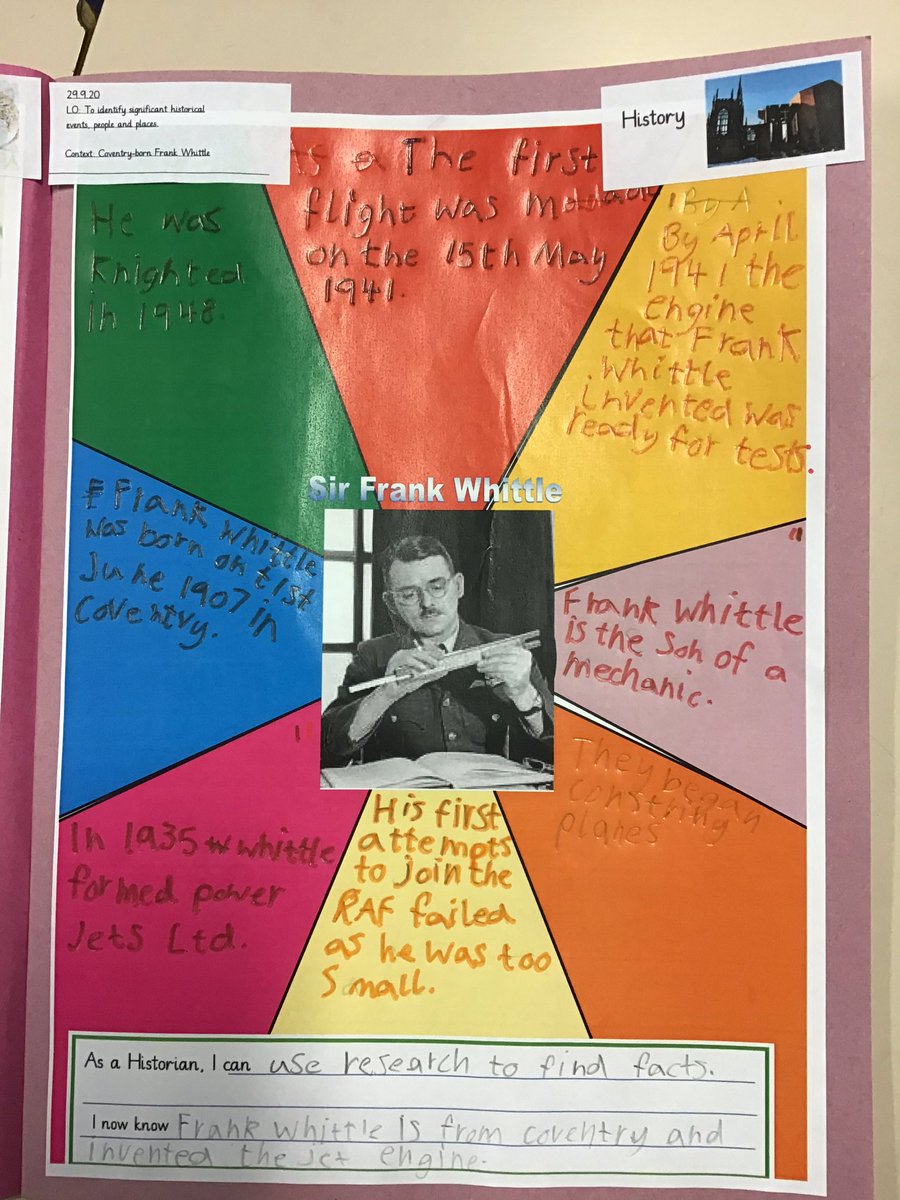 29.9.20
LO: To identify significant historical
events, people and places.
Context: Coventry-born Frank Whittle
History
As a The first
flight was made
on the 15th May
1941.
He was
Knighted
in 1948.
By A
By April
1941 the
engine
that Frank
Whittle
invented was
ready for tests.
Sir Frank Whittle
Frank Whittle
was born on 1st
June 1907 in
Coventry.
Frank Whittle
is the son of a
mechanic.
They began
constring
planes
In 1935 w whittle
formed power
Jets Ltd.
His first
attempts
to join the
RAF failed
as he was too
small.
As a Historian, I can use research to find facts.
I now know Frank whittle is from coventry and
invented the jet engine.